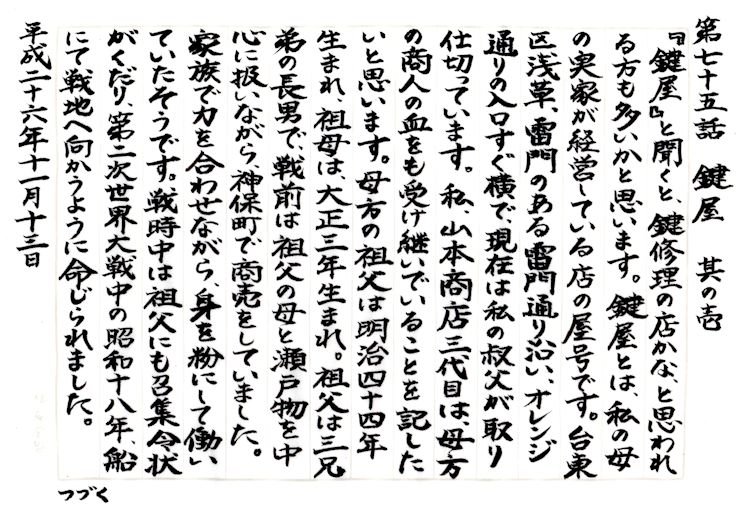 第七十五話　鍵屋　其の壱
『鍵屋』と聞くと、鍵修理の店かな、と思われ
る方も多いかと思います。鍵屋とは、私の母
の実家が経営している店の屋号です。台東
区浅草、雷門のある雷門通り沿い、オレンジ
通りの入口すぐ横で、現在は私の叔父が取り
仕切っています。私、山本商店三代目は、母方
の商人の血をも受け継いでいることを記した
いと思います。母方の祖父は明治四十四年
生まれ、祖母は、大正三年生まれ。祖父は三兄
弟の長男で、戦前は祖父の母と瀬戸物を中
心に扱いながら、神保町で商売をしていました。
家族で力を合わせながら、身を粉にして働い
ていたそうです。戦時中は祖父にも召集令状
がくだり、第二次世界大戦中の昭和十八年、船
にて戦地へ向かうように命じられました。
平成二十六年十一月十三日
つづく